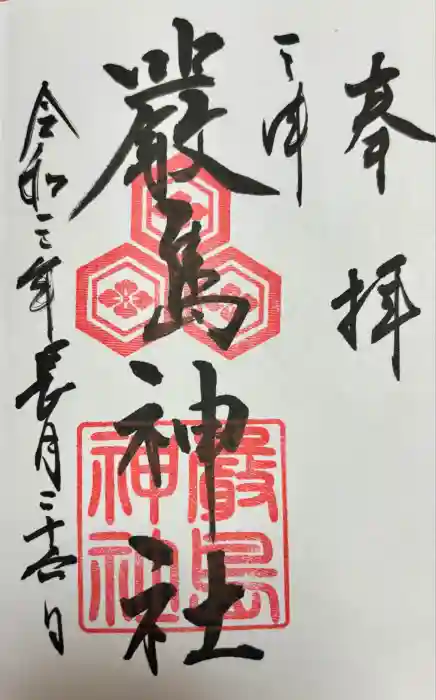 奉拝
三津
嚴島神社
令和三年長月二十六日
嚴島
神社